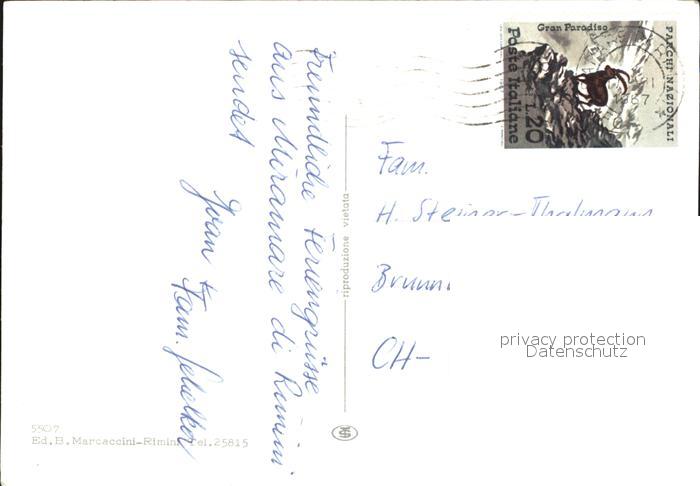 Freundliche Feriengrüsse
aus Miramare di Rimini
sendet
Fam.
Gran Paradiso
PARCHI NAZIONALI
Poste Italiane
L.20
1967
Fam.
H. Steiner-Thalmann
CH-
privacy protection
Datenschutz
riproduzione vietata
5507
Ed. B. Marcaccini-Rimini Tel. 25815